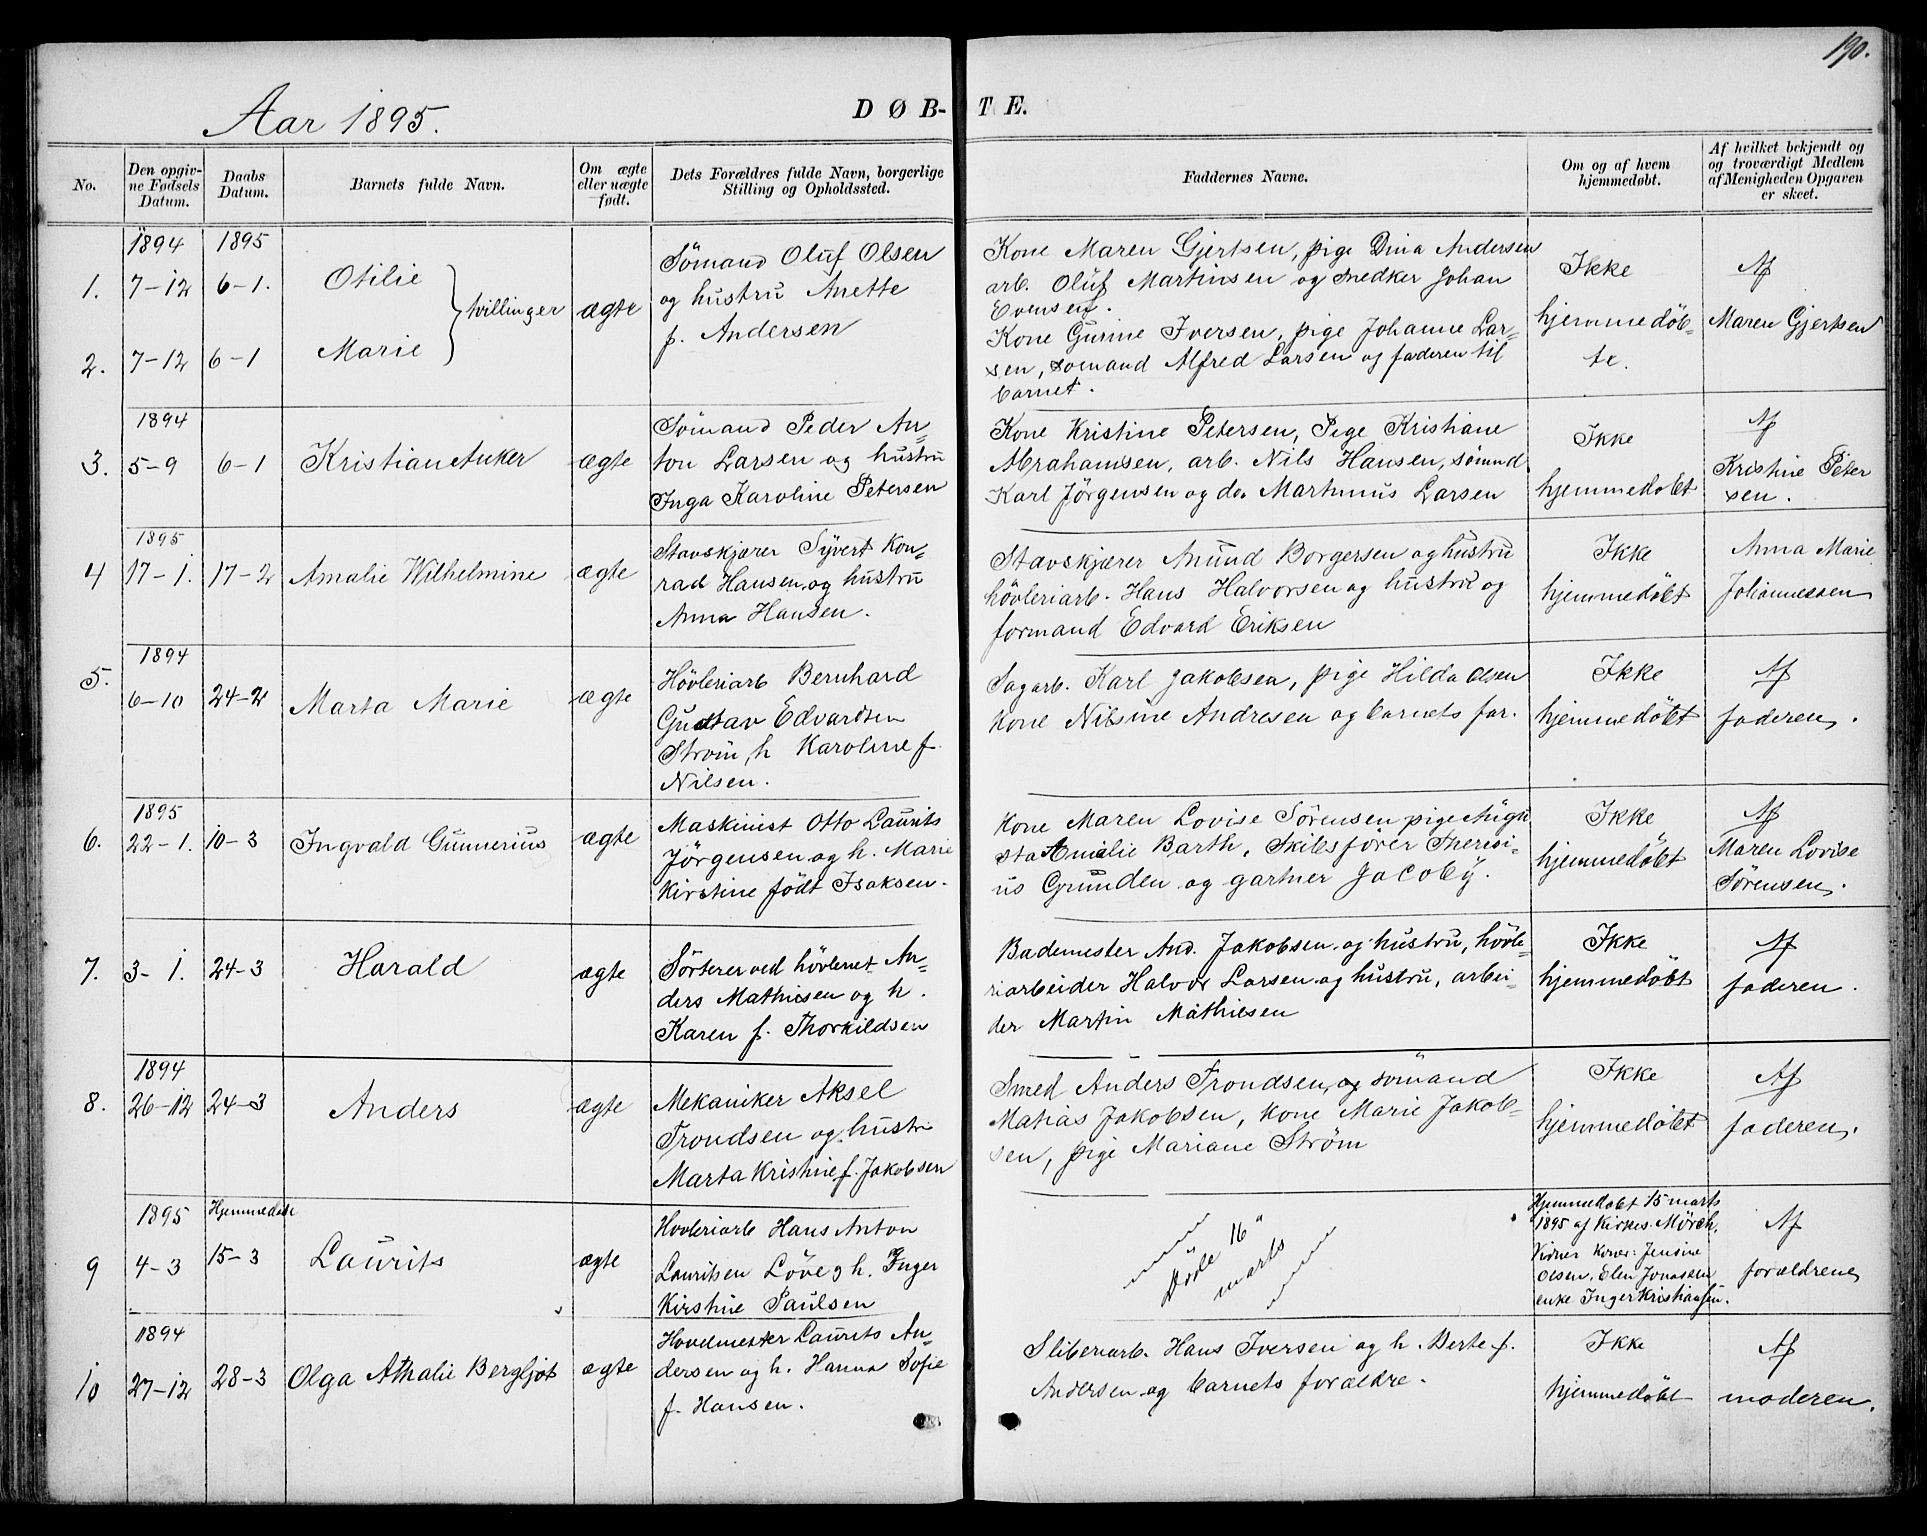 190.
Aar 1895.
DØB-TE.
No.
Den opgivne Fødsels Datum.
Daabs Datum.
Barnets fulde Navn.
Om ægte eller uægte født.
Dets Forældres fulde Navn, borgerlige Stilling og Opholdssted.
Faddernes Navne.
Om og af hvem hjemmedøbt.
Af hvilket bekjendt og og troværdigt Medlem af Menigheden Opgaven er skeet.
1894 1895
1. 7-12 6-1. Otilie
2. 7-12 6-1 Marie
tvillinger
ægte
Sömand Oluf Olsen
og hustru Anette
f. Andersen
Kone Maren Gjertsen, pige Dina Andersen
arb. Oluf Martinsen og snedker Johan
Evensen.
Kone Gurine Iversen, pige Johanne Lar-
sen, sømand Alfred Larsen og faderen til
barnet.
Ikke
hjemmedøb-
te.
Af
Maren Gjertsen
1894
3. 5-9 6-1 Kristian Anker ægte
Sömand Peder An-
ton Larsen og hustru
Inga Karoline Petersen
Kone Kristine Petersen, Pige Kristiane
Abrahamsen, arb. Nils Hansen, sømnd.
Karl Jörgensen og do. Martinius Larsen
Ikke
hjemmedøbt
Af
Kristine Peter
sen.
1895
4 17-1. 17-2 Amalie Wilhelmine ægte
Stavskjærer Syvert Kon-
rad Hansen og hustru
Anna Hansen.
Stavskjærer Anund Borgersen og hustru
hövleriarb. Hans Halvorsen og hustru og
formand Edvard Eriksen
Ikke
hjemmedøbt
Anna Marie
Johannessen
1894
5. 6-10 24-2 Marta Marie ægte
Hövleriarb Bernhard
Gustav Edvardsen
Strøm, h Karoline f.
Nilsen.
Sagarb. Karl Jakobsen, pige Hilda Olsen
Kone Nilsine Andresen og barnets far.
Ikke
hjemmedøbt
Af
faderen.
1895
6. 22-1. 10-3 Ingvald Gunnerius ægte
Maskinist Otto Laurits
Jörgensen og h. Marie
Kirstine födt Isaksen.
Kone Maren Lovise Sörensen pige Augu
sta Amalie Barth, Skibsförer Theresi-
us Grunden og gartner Jacoby.
Ikke
hjemmedøbt
Af
Maren Lovise
Sörensen.
7. 3-1. 24-3 Harald ægte
Sörterer ved hövleriet An-
ders Mathisen og h.
Karen f. Thorkildsen
Bademester And. Jakobsen og hustru, hövle-
riarbeider Halvor Larsen og hustru, arbei-
der Martin Mathiesen
Ikke
hjemmedøbt
Af
faderen.
1894
8. 26-12 24-3 Anders ægte
Mekaniker Aksel
Trondsen og hustru
Marta Kristine f. Jakobsen
Smed Anders Trondsen, og sömand
Matias Jakobsen, kone Marie Jakob-
sen, pige Mariane Strøm
Ikke
hjemmedøbt
Af
faderen.
1895 Hjemmedøbt
9 4-3 15-3 Laurits ægte
Hovleriarb Hans Anton
Lauritsen Löve og h. Inger
Kirstine Paulsen
Döde 16
marts
Hjemmedøbt 15 marts
1895 af Kirkes. Mörch.
Vidner Koner: Jensine
Olsen, Elen Jonassen
enke Inger Kristiansen.
Af
forældrene
1894
10 27-12 28-3 Olga Athalie Bergljot ægte
Hovedmester Laurits An-
dersen og h. Hanna Sofie
f. Hansen.
Sliberiarb. Hans Iversen og h. Berte f.
Andersen og barnets forældre.
Ikke
hjemmedøbt
Af
moderen.